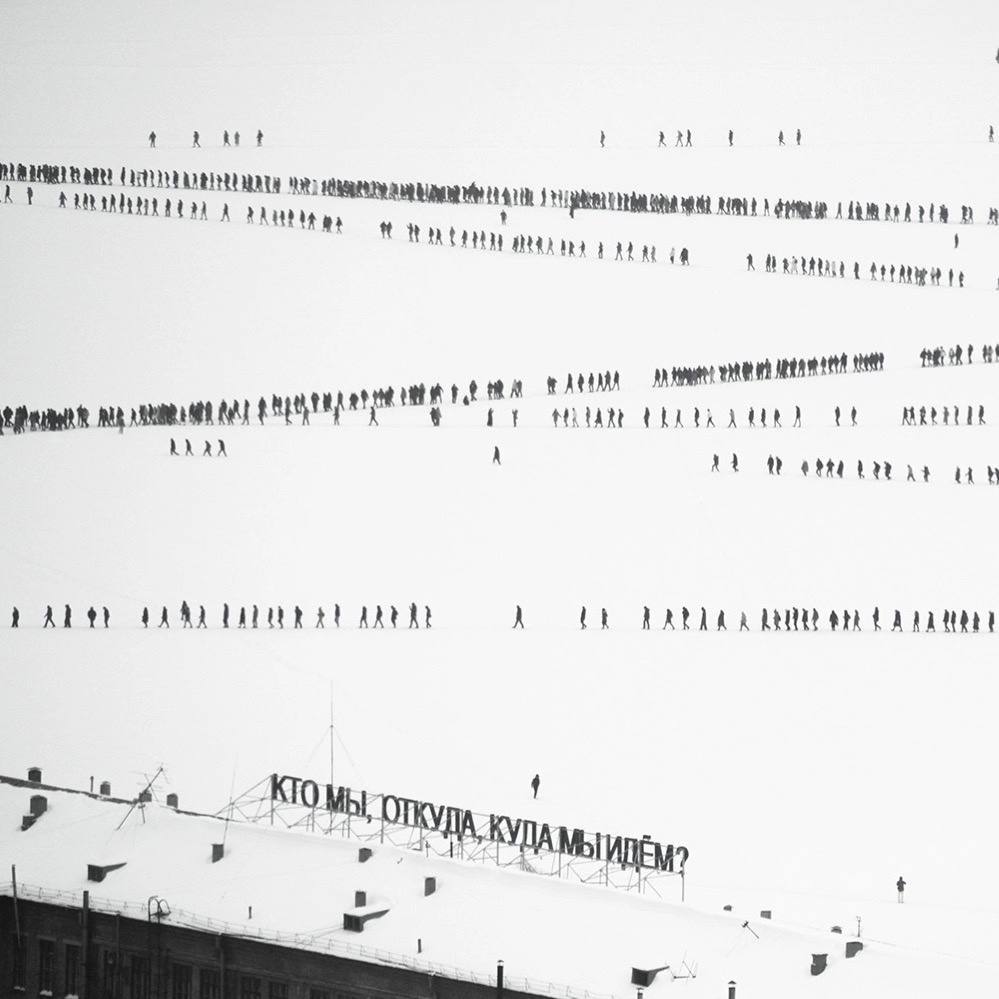 КТО МЫ, ОТКУДА, КУДА МЫ ИДЁМ?